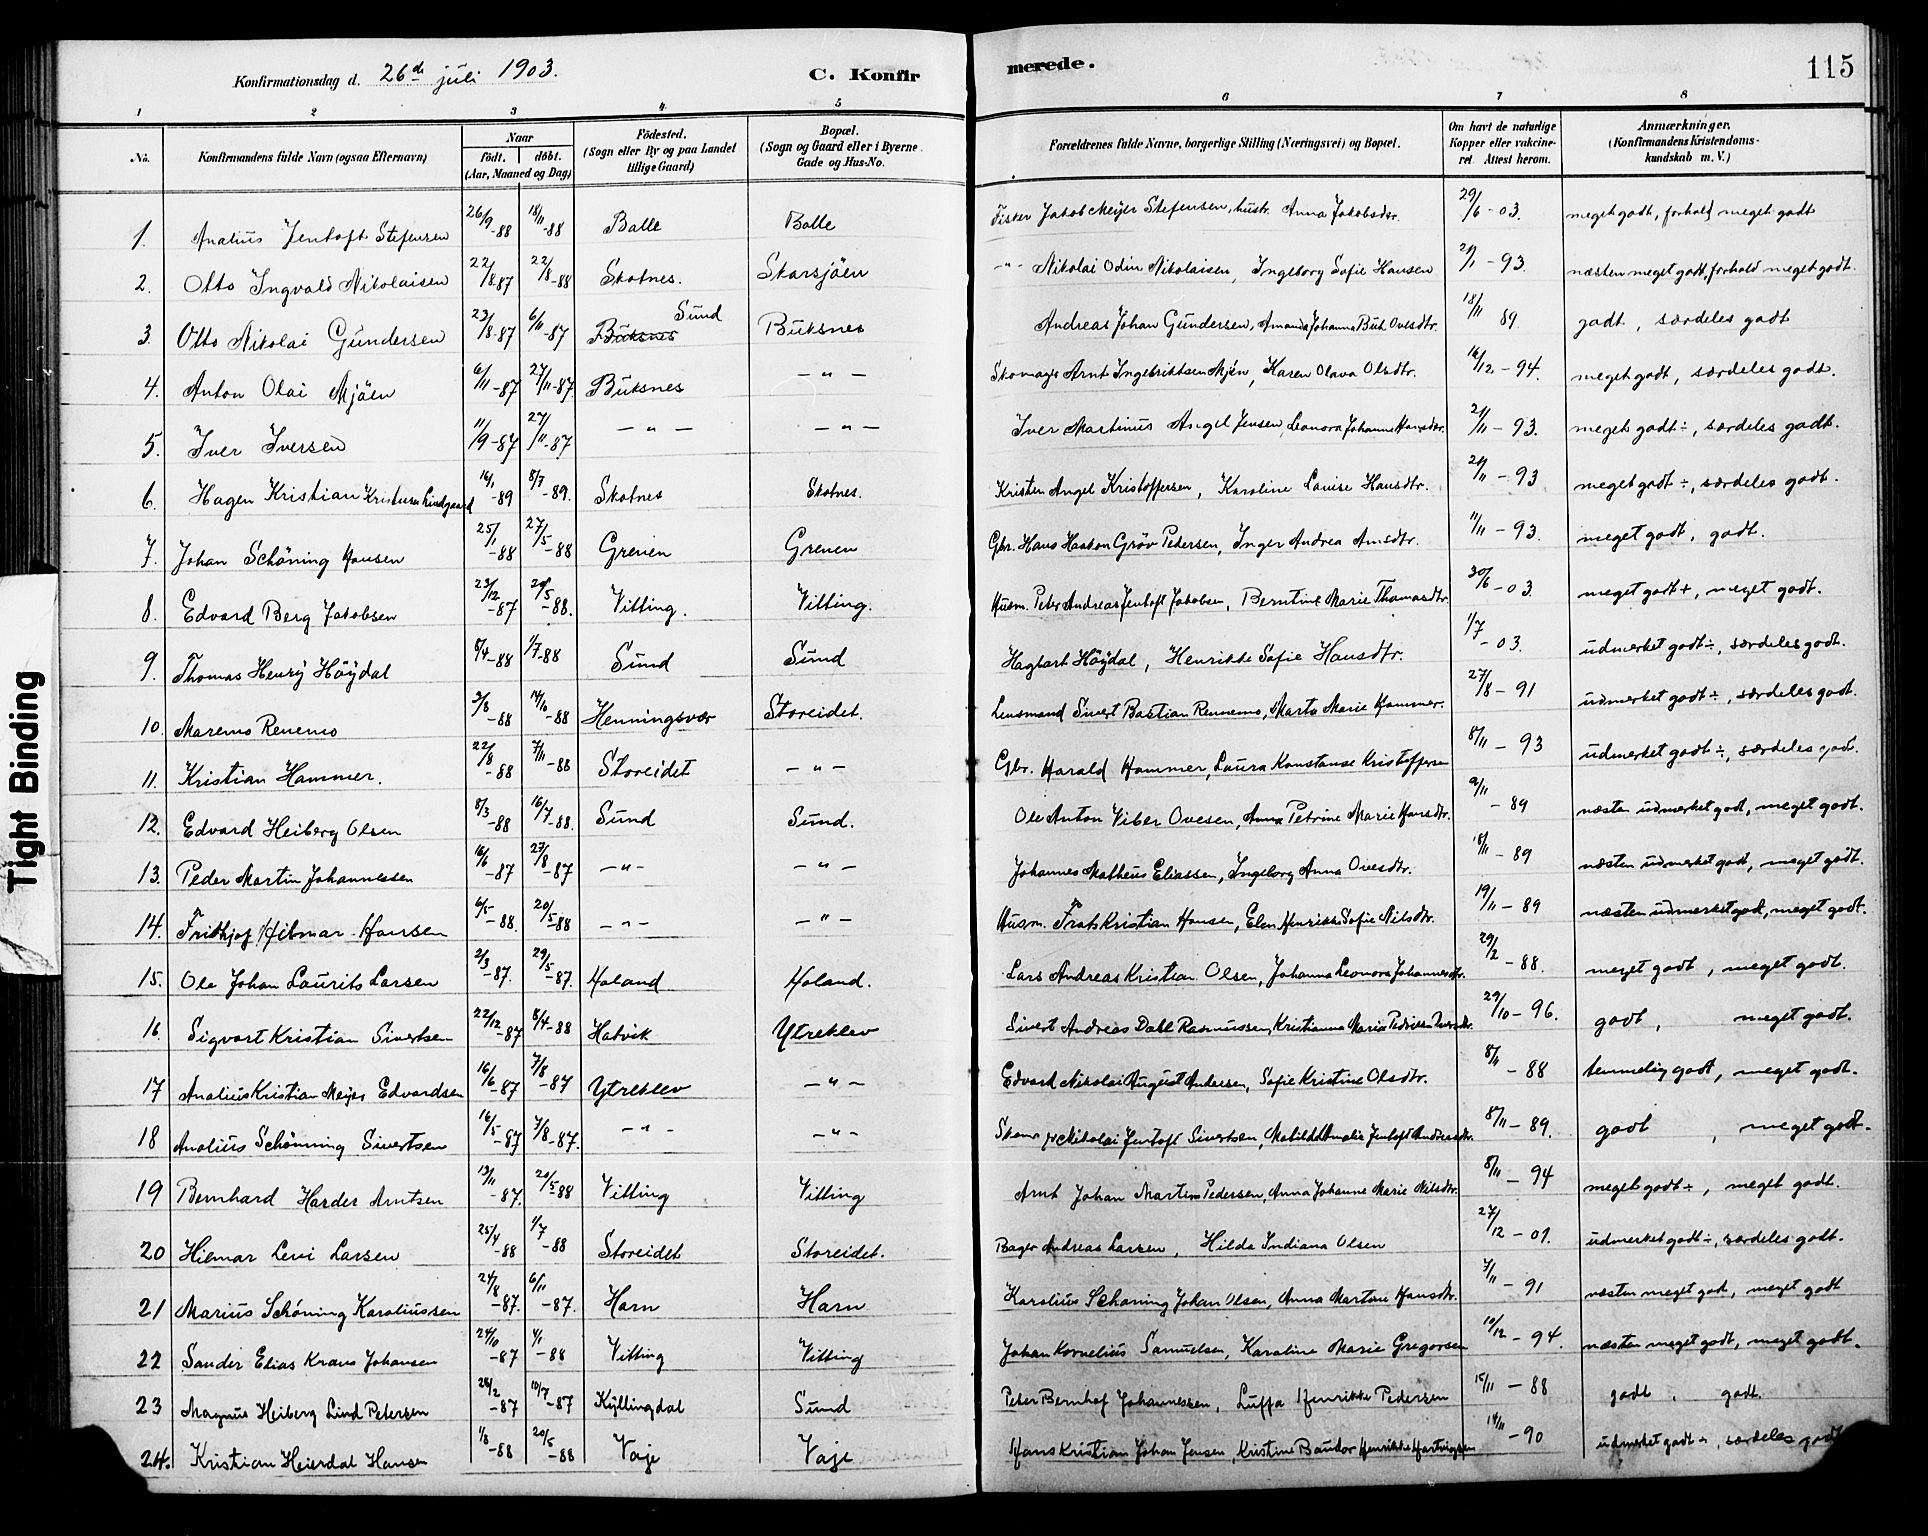 Konfirmationsdag d. 26de juli 1903. C. Konfir merede. 115
1 2 3 4 5 6 7 8
No. Konfirmandens fulde Navn (ogsaa Efternavn) Naar födt. döbt. (Aar, Maaned og Dag) Födested. (Sogn eller By og paa Landet tillige Gaard) Bopæl. (Sogn og Gaard eller i Byerne Gade og Hus-No. Forældrenes fulde Navne, borgerlige Stilling (Næringsvei) og Bopæl. Om havt de naturlige Kopper eller vakcineret Attest herom. Anmærkninger. (Konfirmandens Kristendomskundskab m. V.)
1. Analius Jentoft Stefensen 26/9-88 18/11-88 Balle Balle Fisker Jakob Meyer Stefensen, hustr. Anna Jakobsdtr. 29/6-03. meget godt, forhold meget godt
2. Otto Ingvald Nikolaisen 22/8-87 22/8-88 Skotnes. Skarsjöen -"- Nikolai Odin Nikolaisen, Ingeborg Sofie Hansen 2/1-93. næsten meget godt, forhold meget godt.
3. Otto Nikolai Gundersen 23/8-87 6/11-87 Buksnes Sund Buksnes Andreas Johan Gundersen, Amanda Johanna But. Ovesdtr. 18/11 89. godt, særdeles godt
4. Anton Olai Mjöen 6/11-87 27/11-87. Buksnes -"- Skomager Arnt Ingebriktsen Mjön, Karen Olava Olsdtr. 16/12-94. meget godt, særdeles godt.
5. Iver Iversen 11/9-87 27/11-87 -"- -"- Iver Martinus Angel Jensen, Leonora Johanna Hansdtr. 21/11-93. meget godt ÷, særdeles godt.
6. Hagen Kristian Kristensen Lindgaard 16/1-89 8/7-89. Skotnes Skotnes. Kristen Angel Kristoffersen, Karoline Louise Hansdtr. 21/11-93 meget godt ÷, særdeles godt.
7. Johan Schöning Hansen 25/1-88 27/5-88 Grenen Grenen Gbr. Hans Haakon Gröv Pedersen, Inger Andrea Arnsdtr. 11/11-93. meget godt, godt.
8. Edvard Berg Jakobsen 23/12-87 20/5-88. Vitting. Vitting. Husm. Peter Andreas Jentoft Jakobsen, Berntine Marie Thomasdtr. 30/6-03. meget godt +, meget godt.
9. Thomas Henry Höydal 8/4-88 1/7-88 Sund Sund Hagbart Höydal, Henrikke Sofie Hansdtr. 1/7-03. udmerket godt ÷, særdeles godt.
10. Maremo Renemo 3/8-88 14/10-88 Henningsvær Storeidet. Lensmand Sivert Bastian Rennemo, Marta Marie Hammer. 27/8-91 udmerket godt ÷, særdeles godt.
11. Kristian Hammer. 22/8-88 7/11-88 Storeidet -"- Gbr. Harald Hammer, Laura Konstanse Kristoffersen 8/11-93 udmerket godt ÷, særdeles godt.
12. Edvard Heiberg Olsen 8/3-88 16/7-88. Sund Sund. Ole Anton Viber Ovesen, Anna Petrine Marie Hansdtr. 9/11-89 næsten udmerket godt, meget godt.
13. Peder Martin Johannessen 16/6-87 27/8-87 -"- -"- Johannes Matheus Eliassen, Ingeborg Anna Ovesdtr. 18/11-89 næsten udmerket godt, meget godt.
14. Fridtjof Hilmar Hansen 6/5-88. 20/5-88 -"- -"- Husm. Frats Kristian Hansen, Elen Henrikke Sofie Nilsdtr. 19/11-89 næsten udmerket godt, meget godt.
15. Ole Johan Laurits Larsen 2/3-87. 29/5-87. Holand Holand. Lars Andreas Kristian Olsen, Johanna Leonora Johannesdtr. 29/2-88. meget godt, meget godt.
16. Sigvart Kristian Sivertsen 22/12-87 8/4-88 Hatvik Ytreklev Sivert Andreas Dahl Rasmussen, Kristianna Maria Pedrikke 29/10-96. godt, meget godt.
17 Analius Kristian Meyer Edvardsen 16/6-87 7/8-87 Ytreklev -"- Edvard Nikolai August Andersen, Sofie Kristine Olsdtr. 8/11-88 temmelig godt, meget godt.
18 Analius Schönning Sivertsen 16/5-87 7/8-87. -"- -"- Nikolai Jentoft Sivertsen, Matilde Amalie Jentoft Andreasdtr. 8/11-89. godt, meget godt.
19 Bernhard Harder Arntsen 13/11-87. 20/5-88 Vitting Vitting Arnt Johan Martin Pedersen, Anna Johanne Marie Nilsdtr. 8/11-94 meget godt ÷, meget godt.
20 Hilmar Levi Larsen 25/4-88 1/7-88 Storeidet Storeidet. Bager Andreas Larsen, Hilda Indiana Olsen 27/12-01. udmerket godt ÷, særdeles godt.
21 Marius Schöning Karoliussen 24/8-87. 6/11-87. Harn Harn Karolius Schøning Johan Olsen, Anna Martine Hansdtr. 7/11-91 næsten meget godt, meget godt
22 Sander Elias Kraus Johansen 24/10-87 4/1-88 Vitting Vitting Johan Kornelius Samuelsen, Karoline Marie Gregorsen 10/12-94. næsten meget godt, meget godt.
23 Magnus Heiberg Lind Petersen 26/2-87 10/7-87 Kyllingdal Sund Peter Bernhof Johannessen, Luffa Henrikke Pedersen 15/11-88 godt, godt.
24. Kristian Heierdal Hansen 1/8-88 20/5-88 Vaje Vaje Hans Kristian Johan Jensen, Kristine Baudor Henrikke Hartvigsen 14/11-90 udmerket godt ÷, særdeles godt
Tight Binding